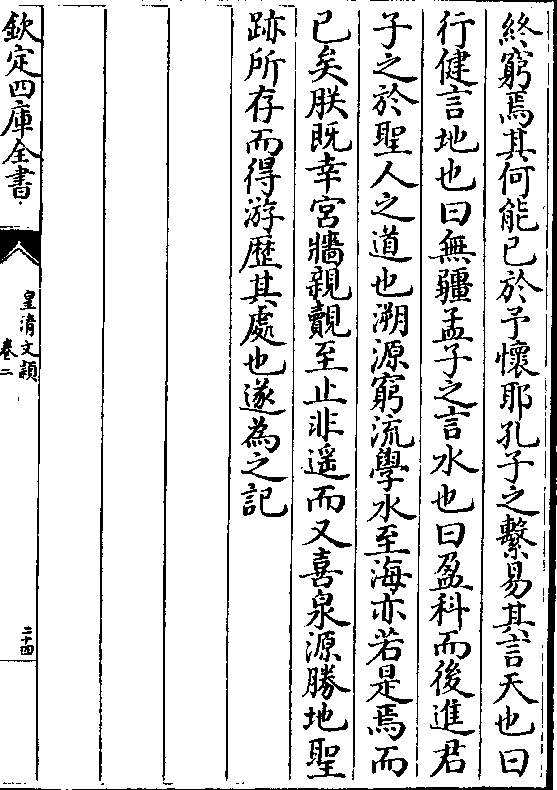 終窮焉其何能已於予懷耶孔子之繫易其言天也曰
行健言地也曰無疆孟子之言水也曰盈科而後進君
子之於聖人之道也溯源窮流學水至海亦若是焉而
已矣朕既幸宮牆親覿至止非遥而又喜泉源勝地聖
跡所存而得游歷其處也遂為之記
欽定四庫全書
皇清文穎
卷二
二十四